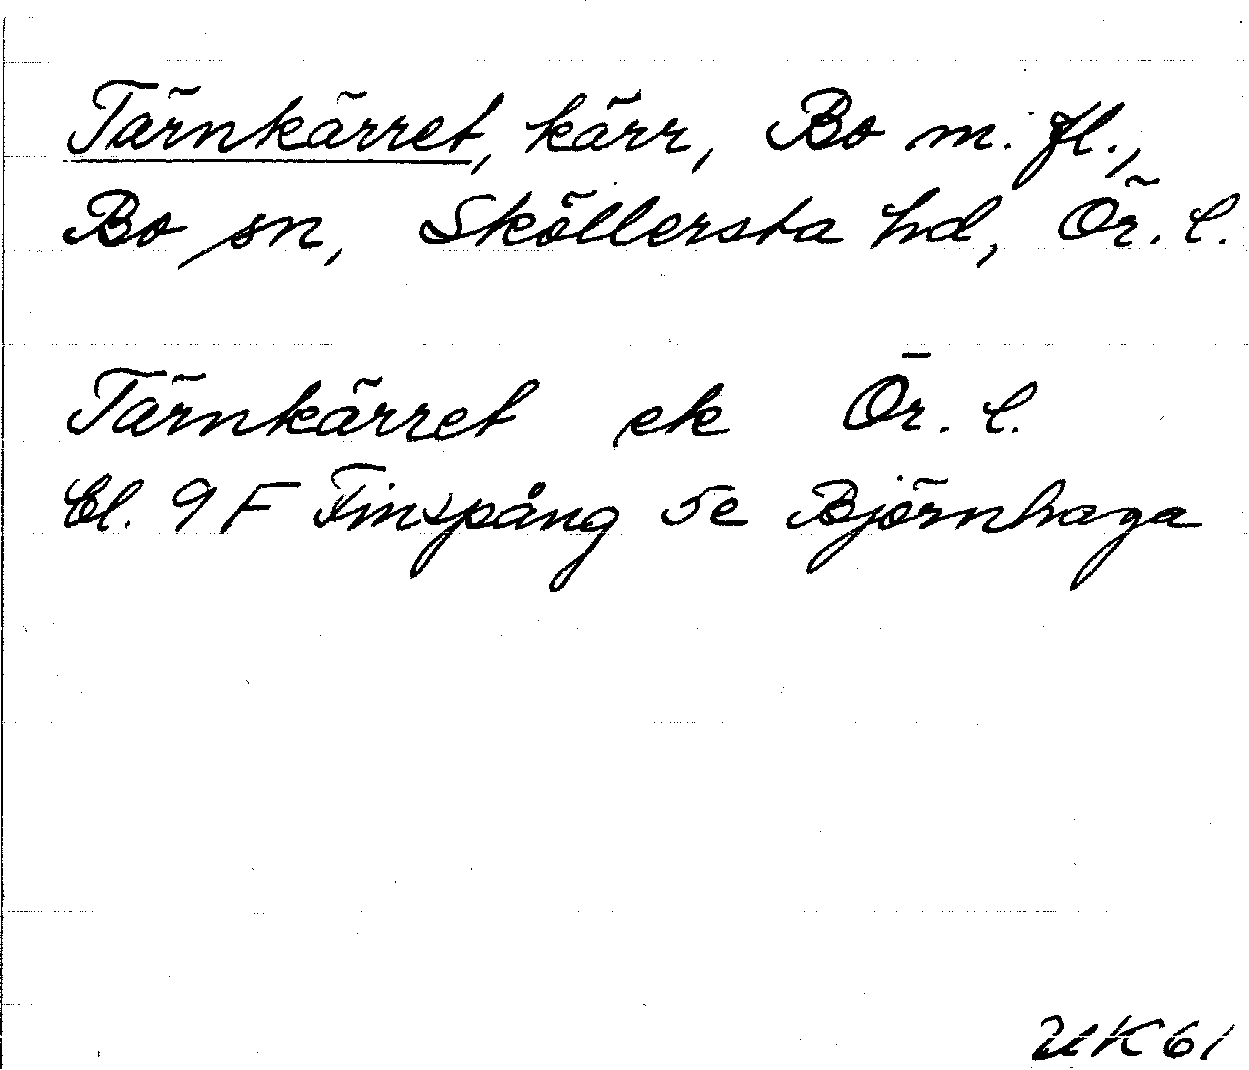 Tärnkärret, kärr, Bo m. fl.,
Bo sn, Sköllersta hd, Ör. l.
Tärnkärret ek Ör. l.
bl. 9 F Finspång 5e Björnhaga
UK 61